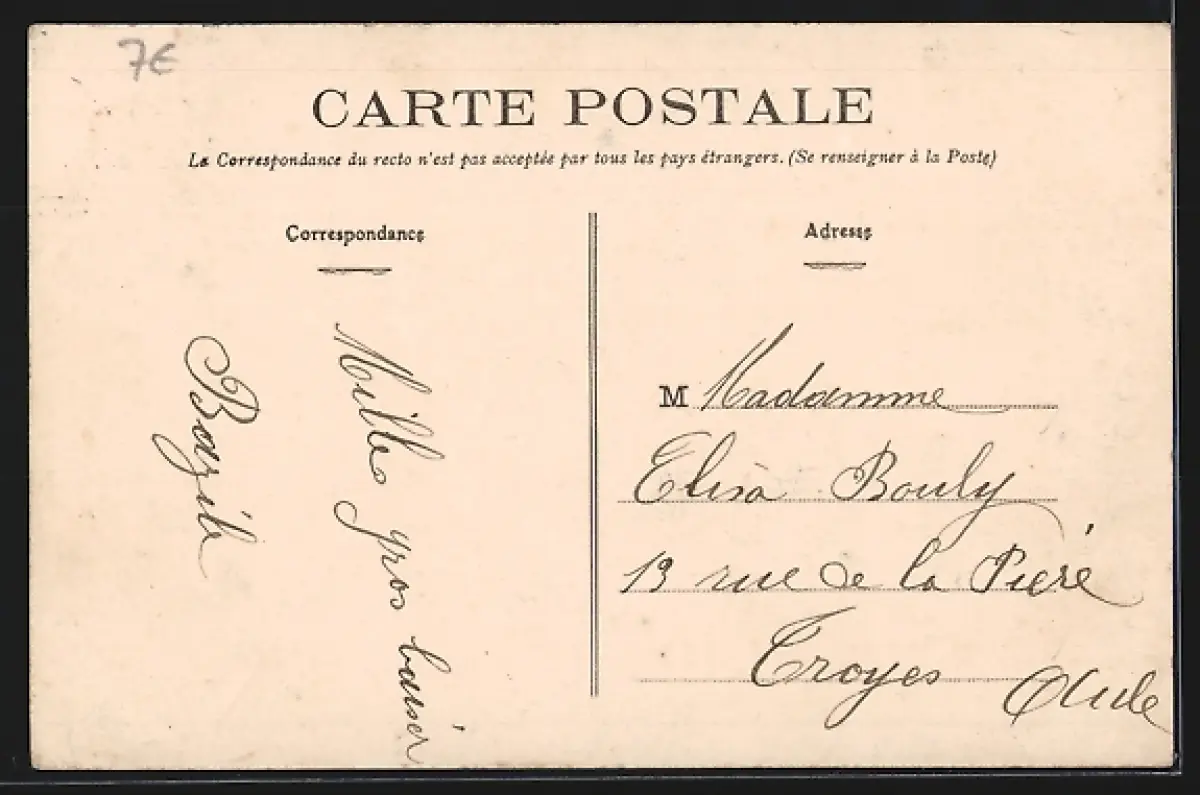 7€
CARTE POSTALE
La Correspondance du recto n'est pas acceptée par tous les pays étrangers. (Se renseigner à la Poste)
Correspondance
Mille gros baisér
Bazile
Adresse
M Madamme
Elisa Bouly
13 rue de la Pieré
Troyes Aube